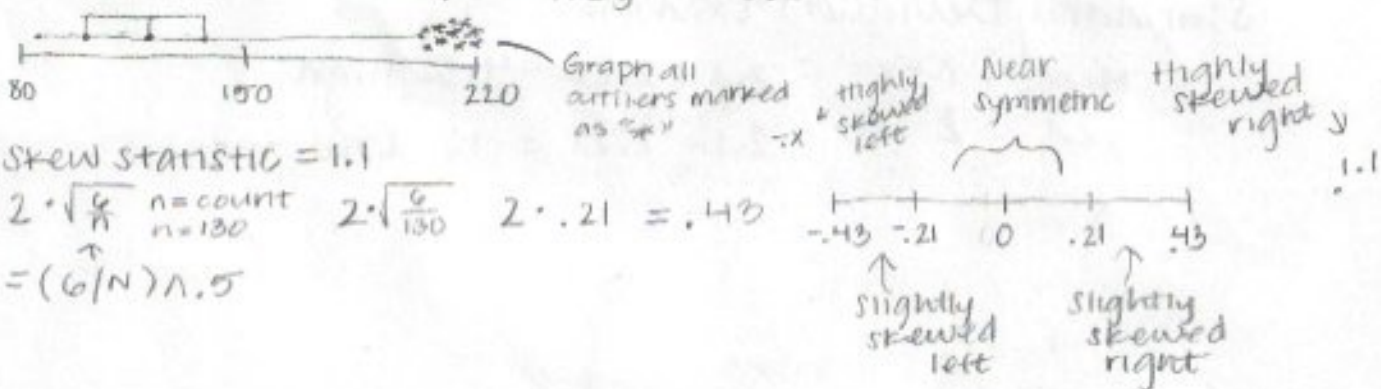 80 150 220
Graph all
outliers marked
as "*"
skew statistic = 1.1
2 · √6/n n = count
n = 130
2 · √6/130 2 · .21 = .43
= (6/N)^.5
-x Highly
skewed
left
Near
symmetric
Highly
skewed
right
1.1
-.43 -.21 0 .21 .43
slightly
skewed
left
slightly
skewed
right